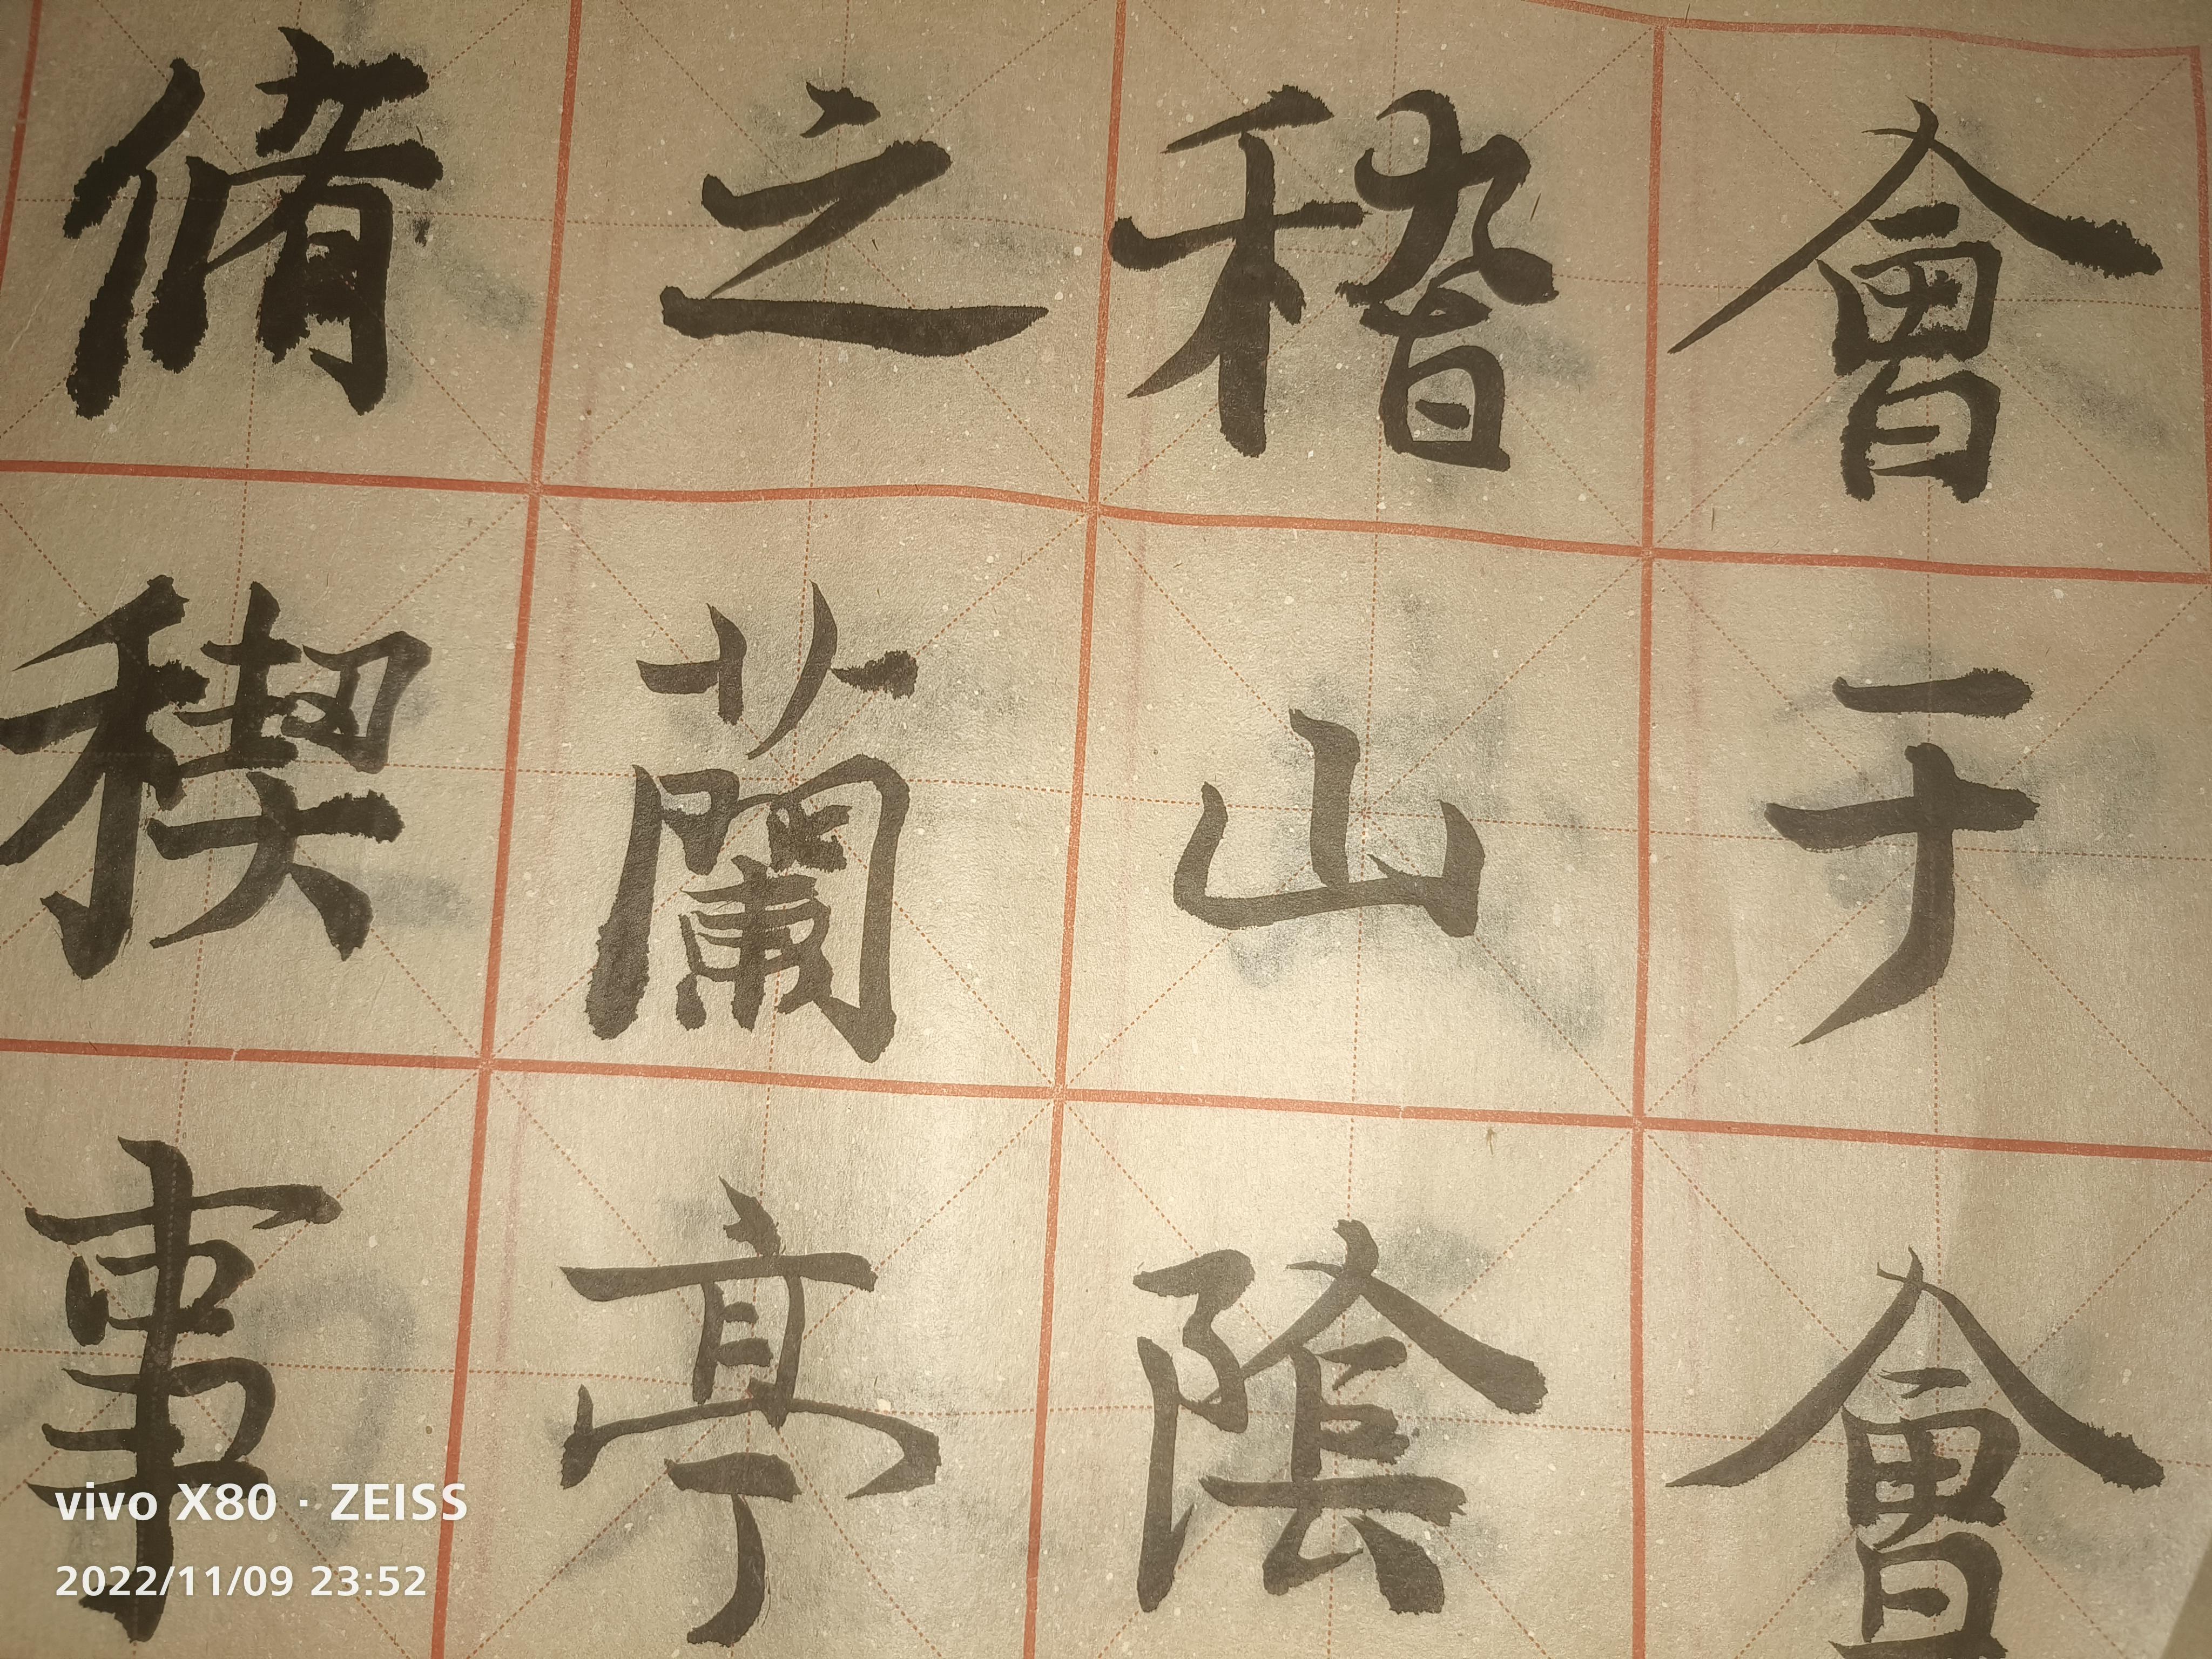 會于會
稽山陰
之蘭亭
脩稧事
vivo X80 · ZEISS
2022/11/09 23:52